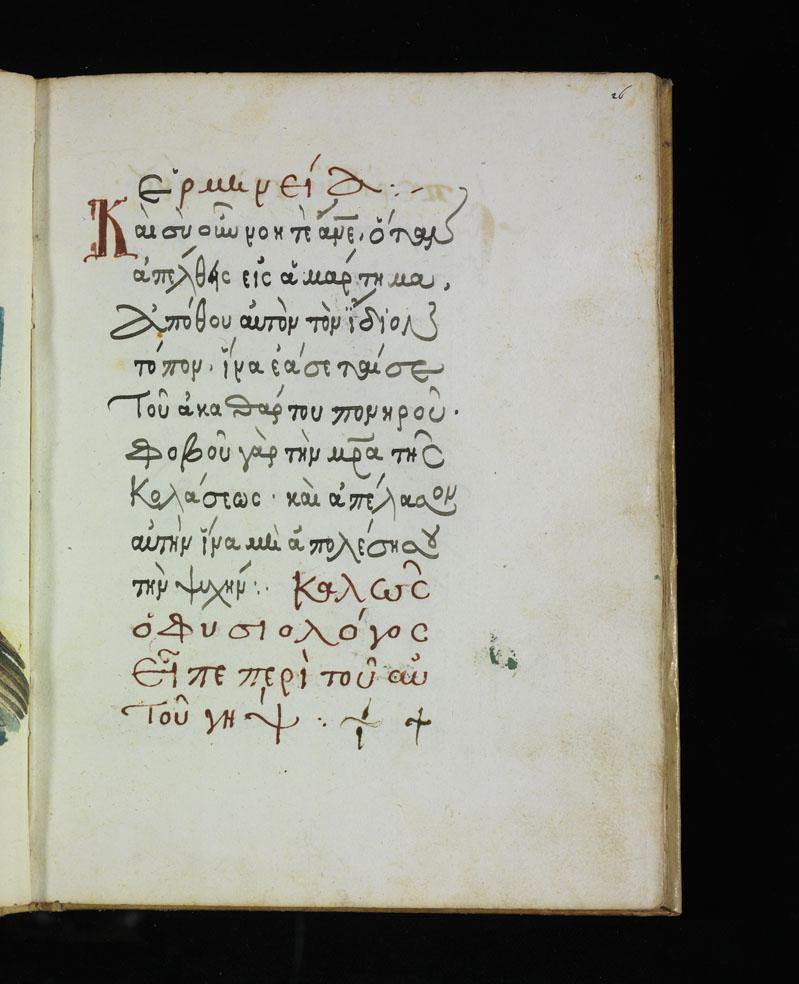 26
Ερμηνεία :~
Καὶ σὺ οὖν νοητὲ ἄνε, ὅταν
ἀπέλθης εἰς ἁμάρτημα,
ἀπόθου αὐτὸν τὸν ἴδιον
τόπον· ἵνα ἐάσεται σε
τοῦ ἀκαθάρτου πονηροῦ·
φοβοῦ γὰρ τὴν μρα τῆς
κολάσεως· καὶ ἀπέλασον
αὐτὴν ἵνα μὴ ἀπολέσης
τὴν ψυχήν:· Καλῶς
ὁ Φυσιολόγος
Εἶπε περὶ τοῦ αὐ
τοῦ γήψ :